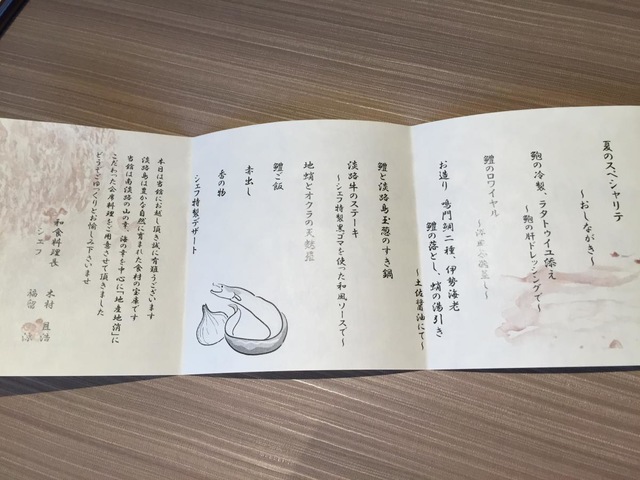 夏のスペシャリテ
～おしながき～
鮑の冷製、ラタトゥイユ添え
～鮑の肝ドレッシングで～
鱧のロワイヤル
お造り 鳴門鯛二種、伊勢海老
鱧の落とし、蛸の湯引き
～土佐醤油にて～
鱧と淡路島玉葱のすき鍋
淡路牛のステーキ
～シェフ特製黒ゴマを使った和風ソースで～
地蛸とオクラの天麩羅
鱧ご飯
赤出し
香の物
シェフ特製デザート
本日は当館にお越し頂き誠に有難うございます
淡路島は豊かな自然に育まれた食材の宝庫です
当館は南淡路の山の幸、海の幸を中心に「地産地消」に
こだわった会席料理をご用意させて頂きました
どうぞごゆっくりとお愉しみ下さいませ
和食料理長 木村
シェフ 福留